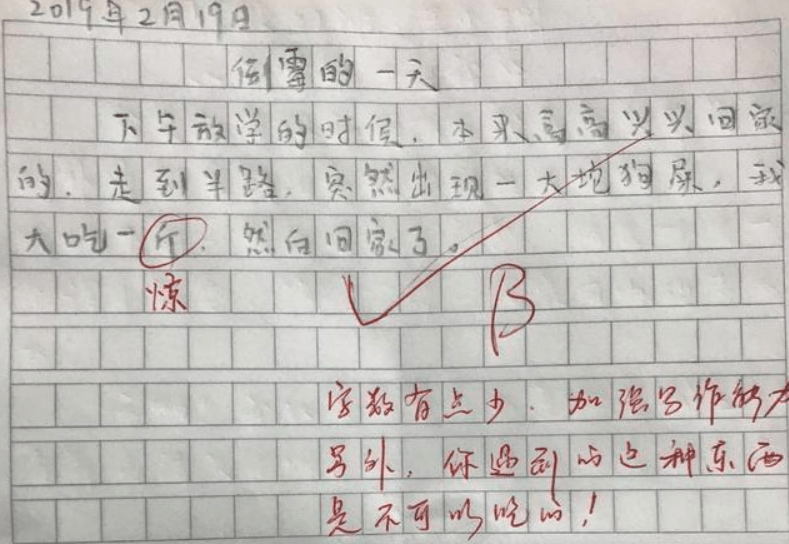 2019年2月19日
倒霉的一天
下午放学的时候,本来高高兴兴回家
的,走到半路,突然出现一大坨狗屎,我
大吃一斤,然后回家了。
惊
B
字数有点少,加强写作能力
另外,你遇到的这种东西
是不可以吃的!